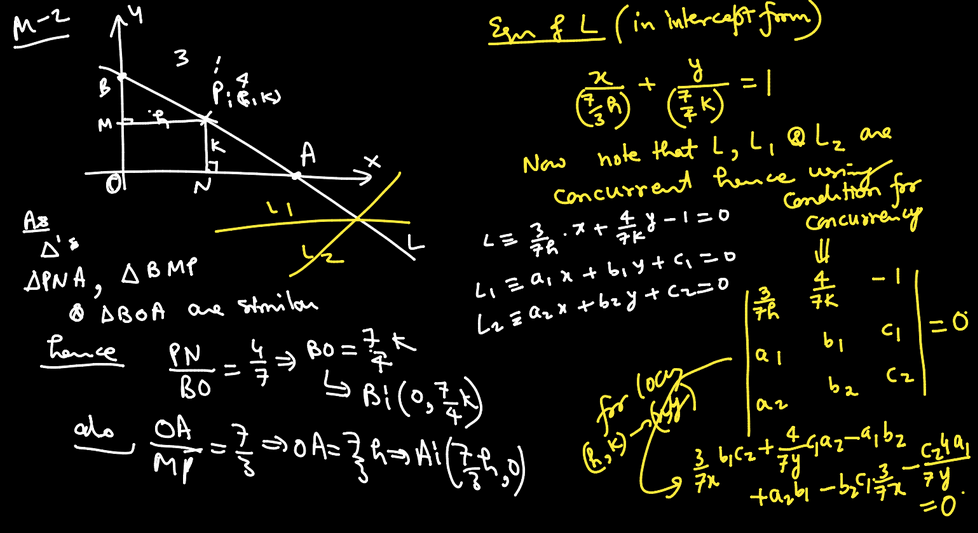 M-2
y
B
3
4
Pi(h,k)
M
h
k
A
x
O
N
L1
L2
L
As
Δ's
ΔPNA, ΔBMP
& ΔBOA are similar
hence PN/BO = 4/7 ⇒ BO = 7/4 k
↳ Bi(0, 7/4 k)
also, OA/MP = 7/3 ⇒ OA = 7/3 h ⇒ Ai(7/3 h, 0)
Eqn of L (in intercept from)
x/(7/3 h) + y/(7/4 k) = 1
Now note that L, L1 & L2 are
concurrent hence using
Condition for
concurrency
⇓
L ≡ 3/7h . x + 4/7k y - 1 = 0
L1 ≡ a1 x + b1 y + c1 = 0
L2 ≡ a2 x + b2 y + c2 = 0
| 3/7h 4/7k -1 |
| a1 b1 c1 | = 0
| a2 b2 c2 |
for locus
(h,k) → (x,y)
3/7x b1c2 + 4/7y c1a2 - a1b2
+ a2b1 - b2c1 3/7x - c24a1/7y
= 0